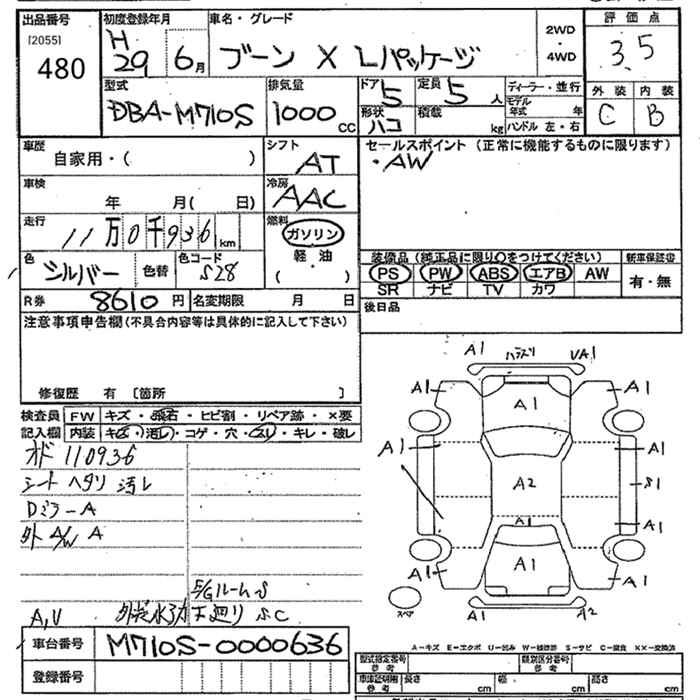 出品番号
[2055]
480
初度登録年月
H
29 6月
車名・グレード
ブーン X Lパッケージ
2WD
・
4WD
評価点
3.5
外装 内装
C B
型式
DBA-M710S
排気量
1000 cc
ドア
5
定員
5 人
形状
ハコ
積載
kg
ディーラー・並行
モデル年式 年
ハンドル 左・右
車歴
自家用・( )
シフト
AT
セールスポイント (正常に機能するものに限ります)
・AW
車検
年 月( 日)
冷房
AAC
走行
11万0千936km
燃料
ガソリン
軽・油
( ・ )
色
シルバー
色替
色コード
S28
装備品(純正品に限り○をつけてください)
新車保証書
PS PW ABS エアB AW
SR ナビ TV カワ
有・無
R券
8610円
名変期限 月 日
後日品
注意事項申告欄(不具合内容等は具体的に記入して下さい)
修復歴 有 〔箇所 〕
検査員
記入欄
FW キズ・飛石・ヒビ割・リペア跡・×要
内装 キズ・汚レ・コゲ・穴・スレ・キレ・破レ
オド 110936
シート ヘタリ 汚レ
Dミラー A
外 A/W A
E/Gルーム S
下廻り S.C
A,V
車台番号
M710S-0000636
登録番号
A1 UA1
A1 A1 A1
A1 A1
A2 S1
A1 A1
A1 A1 A1
A1 A2
スペア
A－キズ E－エクボ U－凹み W－補修跡 S－サビ C－腐食 ××－交換済
型式指定番号
参考
類別区分番号
参考
車庫証明用
参考
長さ cm
幅 cm
高さ cm